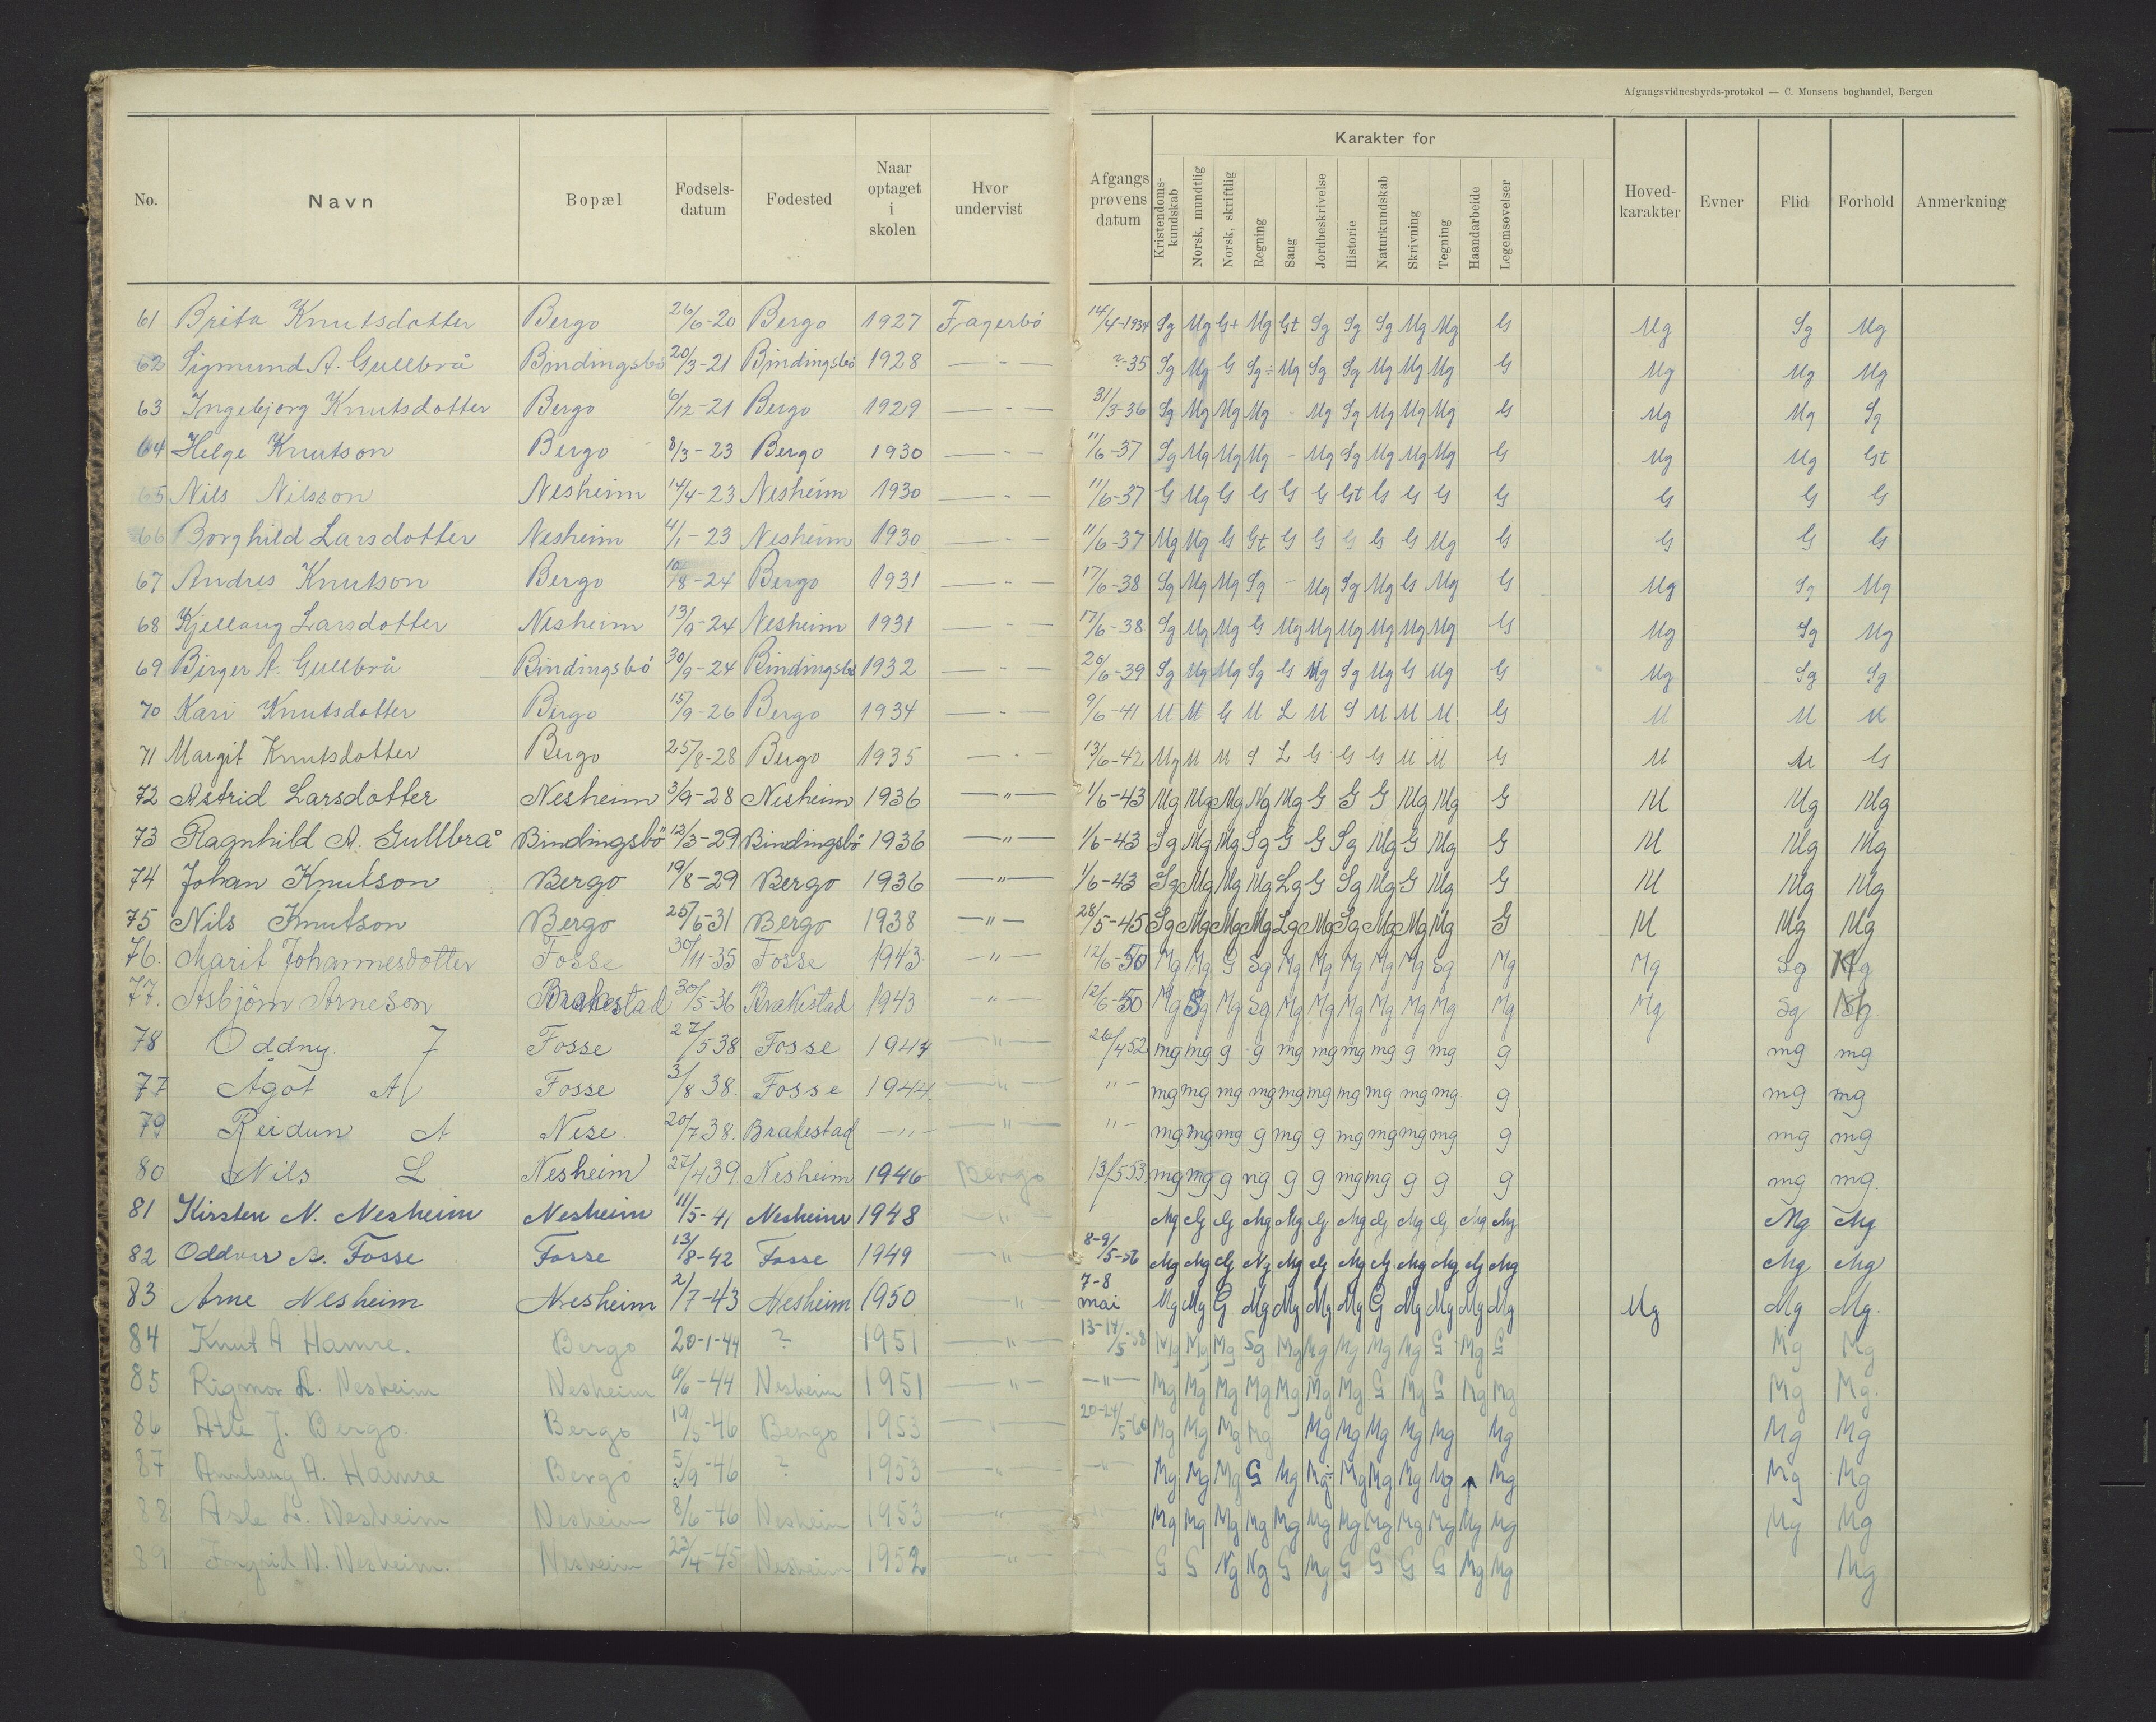 Afgangsvidnesbyrds-protokol — C. Monsens boghandel, Bergen
No. Navn Bopæl Fødsels-datum Fødested Naar optaget i skolen Hvor undervist Afgangs prøvens datum Karakter for Kristendoms-kundskab Norsk, mundtlig Norsk, skriftlig Regning Sang Jordbeskrivelse Historie Naturkundskab Skrivning Tegning Haandarbeide Legemsøvelser Hoved-karakter Evner Flid Forhold Anmerkning
61 Brita Knutsdotter Bergo 26/6-20 Bergo 1927 Fagerbö 14/4-1934 Sg Mg G+ Mg Gt Sg Sg Sg Mg Mg G Mg Sg Mg
62 Sigmund A. Gullbrå Bindingsbö 20/3-21 Bindingsbö 1928 — - — ?-35 Sg Mg G Sg÷ Mg Sg Sg Mg Mg Mg G Mg Mg Mg
63 Ingebjorg Knutsdotter Bergo 6/12-21 Bergo 1929 — - — 31/3-36 Sg Mg Mg Mg - Mg Sg Mg Mg Mg G Mg Mg Sg
64 Helge Knutson Bergo 8/3-23 Bergo 1930 — - — 11/6-37 Sg Mg Mg Mg - Mg Sg Mg Mg Mg G Mg Mg Gt
65 Nils Nilsson Nesheim 14/4-23 Nesheim 1930 — - — 11/6-37 G Mg G G G G Gt G G G G G G G
66 Borghild Larsdotter Nesheim 4/1-23 Nesheim 1930 — - — 11/6-37 Mg Mg G Gt G G G G G Mg G G G G
67 Andres Knutson Bergo 10/8-24 Bergo 1931 — - — 17/6-38 Sg Mg Mg Sg - Mg Sg Mg G Mg G Mg Sg Mg
68 Kjellaug Larsdotter Nesheim 13/9-24 Nesheim 1931 — - — 17/6-38 Sg Mg Mg G Mg Mg Mg Mg Mg Mg G Mg Sg Mg
69 Birger A. Gullbrå Bindingsbö 30/9-24 Bindingsbö 1932 — - — 20/6-39 Sg Mg Mg Sg G Mg Sg Mg G Mg G Mg Sg Sg
70 Kari Knutsdotter Bergo 15/9-26 Bergo 1934 — - — 9/6-41 M M G M L M S M M M G M M M
71 Margit Knutsdotter Bergo 25/8-28 Bergo 1935 — - — 13/6-42 Mg M M S L G G G M M G M M G
72 Astrid Larsdotter Nesheim 3/9-28 Nesheim 1936 —"— 1/6-43 Mg Mg Mg Ng Mg G G G Mg Mg G M Mg Mg
73 Ragnhild A. Gullbrå Bindingsbö 12/3-29 Bindingsbö 1936 —" 1/6-43 Sg Mg Mg Sg G G Sg Mg G Mg G M Mg Mg
74 Johan Knutson Bergo 19/8-29 Bergo 1936 —"— 1/6-43 Sg Mg Mg Mg Lg G Sg Mg G Mg G M Mg Mg
75 Nils Knutson Bergo 25/6-31 Bergo 1938 —"— 28/5-45 Sg Mg Mg Mg Lg Mg Sg Mg Mg Mg G M Mg Mg
76. Marit Johannesdotter Fosse 30/11-35 Fosse 1943 —"— 12/6-50 Mg Mg G Sg Mg Mg Mg Mg Mg Sg Mg Mg Sg Mg
77. Asbjörn Arneson Brakestad 30/5-36 Brakestad 1943 —" 12/6-50 Mg Sg Mg Sg Mg Mg Mg Mg Mg Mg Mg Mg Sg
78 Oddny. J Fosse 27/5 38 Fosse 1944 —"— 26/4 52 mg mg g g mg mg mg mg g mg g mg mg
77 Agot A Fosse 3/8 38. Fosse 1944 —"— "— mg mg mg mg mg mg mg mg mg mg g mg mg
79 Reidun A Nese. 20/7 38. Brakestad —"— —"— "— mg mg mg g mg g mg mg mg mg g mg mg
80 Nils L Nesheim 27/4 39. Nesheim 1946 Bergo 13/5 53 mg mg g ng g g mg mg g g g mg mg.
81 Kirsten N. Nesheim Nesheim 11/5-41 Nesheim 1948 —"— Mg G G Mg Mg G Mg G Mg G Mg Mg Mg Mg
82 Oddvar A. Fosse Fosse 13/8-42 Fosse 1949 —"— 8-9/5-56 Mg Mg G Ng Mg G Mg G Mg Mg G Mg Mg Mg
83 Arne Nesheim Nesheim 2/7-43 Nesheim 1950 —"— 7-8 mai Mg Mg G Mg Mg Mg Mg G Mg Mg Mg Mg Mg Mg Mg.
84 Knut A Hamre. Bergo 20-1-44 ? 1951 —"— 13-14/5-58 Mg Mg Mg Sg Mg Mg Mg Mg Mg G Mg G Mg Mg
85 Rigmor L. Nesheim Nesheim 6/6-44 Nesheim 1951 —"— —"— Mg Mg Mg Mg Mg Mg Mg G Mg G Mg Mg Mg Mg.
86 Atle J. Bergo. Bergo 19/5-46 Bergo 1953 —"— 20-24/5-60 Mg Mg Mg Mg Mg Mg Mg Mg Mg Mg Mg Mg
87 Annlaug A. Hamre Bergo 5/9-46 ? 1953 —"— —"— Mg Mg Mg G Mg Mg÷ Mg Mg Mg Mg Mg Mg Mg
88 Asle L. Nesheim Nesheim 8/6-46 Nesheim 1953 —"— " Mg Mg Mg Mg Mg Mg Mg Mg Mg Mg Mg Mg Mg Mg
89 Ingrid N. Nesheim. Nesheim 22/4-45 Nesheim 1952 —"— G G Ng Ng G Mg G G G G Mg Mg Mg